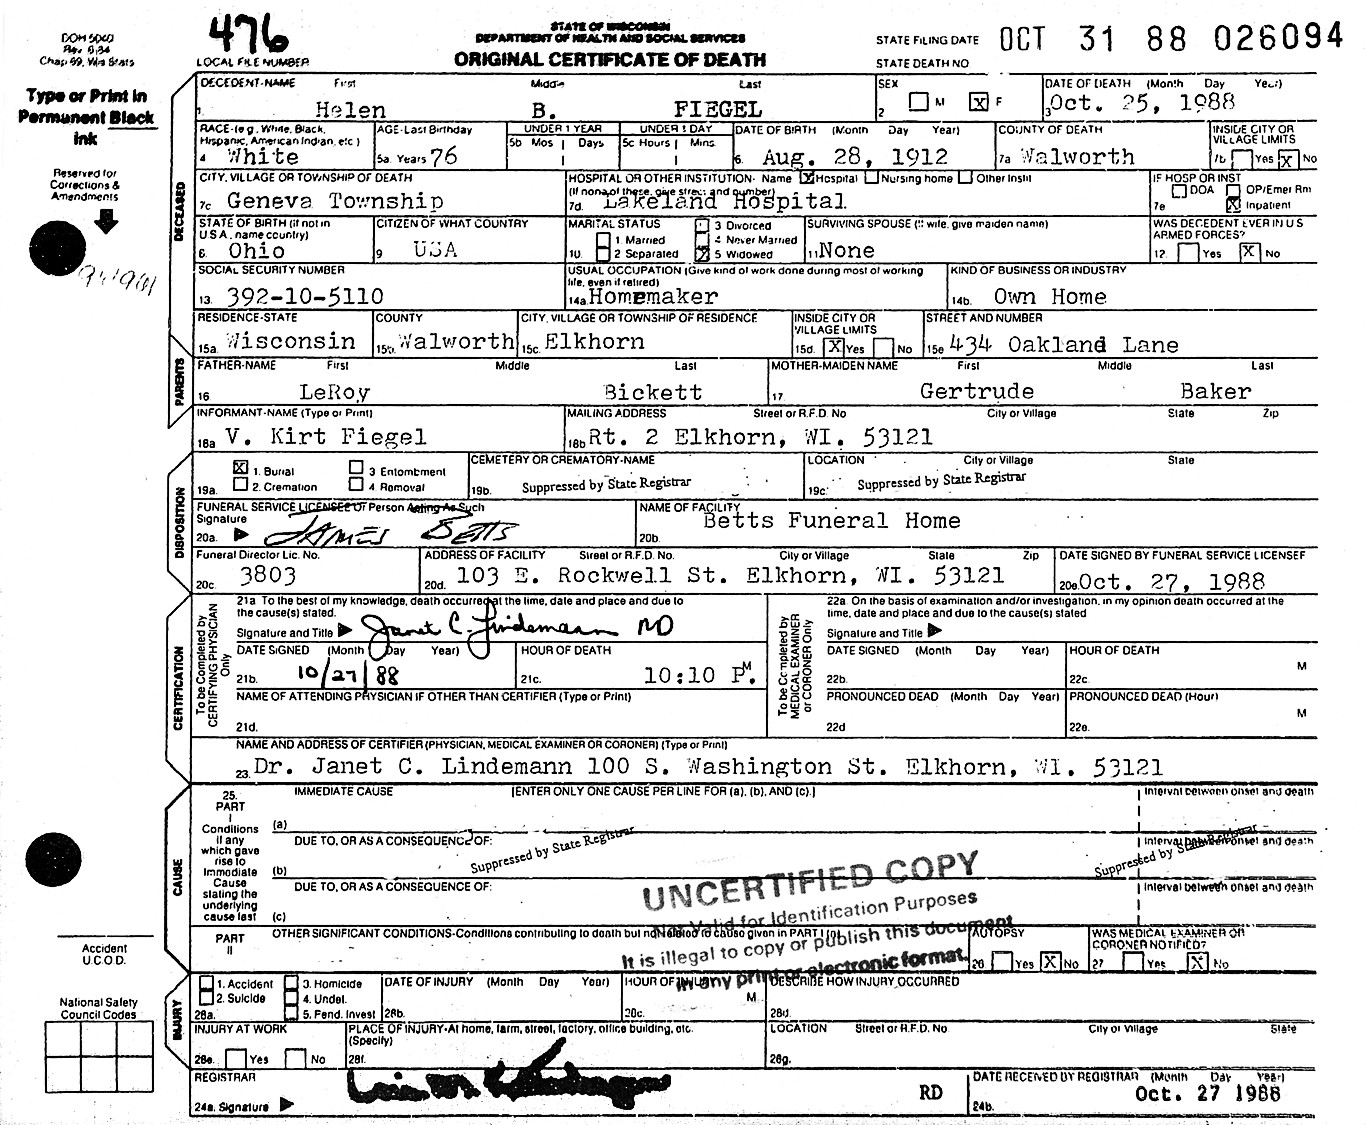 DOH 5040
Rev. 6/84
Chap 69, Wis Stats
476
LOCAL FILE NUMBER
STATE OF WISCONSIN
DEPARTMENT OF HEALTH AND SOCIAL SERVICES
ORIGINAL CERTIFICATE OF DEATH
STATE FILING DATE OCT 31 88 026094
STATE DEATH NO
Type or Print in
Permanent Black
ink
Reserved for
Corrections &
Amendments
DECEASED
DECEDENT-NAME First Middle Last
1. Helen B. FIEGEL
SEX
2 M X F
DATE OF DEATH (Month Day Year)
3 Oct. 25, 1988
RACE-(e g, White, Black,
Hispanic, American Indian, etc)
4 White
AGE-Last Birthday
5a. Years 76
UNDER 1 YEAR
5b Mos Days
UNDER 1 DAY
5c Hours Mins.
DATE OF BIRTH (Month Day Year)
6. Aug. 28, 1912
COUNTY OF DEATH
7a Walworth
INSIDE CITY OR
VILLAGE LIMITS
7b Yes X No
CITY, VILLAGE OR TOWNSHIP OF DEATH
7c Geneva Township
HOSPITAL OR OTHER INSTITUTION- Name X Hospital Nursing home Other Instit
(If none of these, give street and number)
7d. Lakeland Hospital
IF HOSP OR INST
DOA OP/Emer Rm
7e X Inpatient
STATE OF BIRTH (if not in
U.S.A., name country)
Ohio
CITIZEN OF WHAT COUNTRY
9 USA
MARITAL STATUS
1 Married
10. 2 Separated
3 Divorced
4 Never Married
X 5 Widowed
SURVIVING SPOUSE (If wife, give maiden name)
11 None
WAS DECEDENT EVER IN U S
ARMED FORCES?
12. Yes X No
SOCIAL SECURITY NUMBER
13. 392-10-5110
USUAL OCCUPATION (Give kind of work done during most of working
life, even if retired)
14a. Homemaker
KIND OF BUSINESS OR INDUSTRY
14b. Own Home
RESIDENCE-STATE
15a. Wisconsin
COUNTY
15b. Walworth
CITY, VILLAGE OR TOWNSHIP OF RESIDENCE
15c. Elkhorn
INSIDE CITY OR
VILLAGE LIMITS
15d. X Yes No
STREET AND NUMBER
15e 434 Oakland Lane
PARENTS
FATHER-NAME First Middle Last
16 LeRoy Bickett
MOTHER-MAIDEN NAME First Middle Last
17. Gertrude Baker
INFORMANT-NAME (Type or Print)
18a V. Kirt Fiegel
MAILING ADDRESS Street or R.F.D. No City or Village State Zip
18b Rt. 2 Elkhorn, WI. 53121
DISPOSITION
X 1. Burial 3 Entombment
19a. 2. Cremation 4. Removal
CEMETERY OR CREMATORY-NAME
19b. Suppressed by State Registrar
LOCATION City or Village State
19c Suppressed by State Registrar
FUNERAL SERVICE LICENSEE Or Person Acting As Such
Signature
20a. JAMES BETTS
NAME OF FACILITY
20b. Betts Funeral Home
Funeral Director Lic. No.
20c. 3803
ADDRESS OF FACILITY Street or R.F.D. No. City or Village State Zip
20d. 103 E. Rockwell St. Elkhorn, WI. 53121
DATE SIGNED BY FUNERAL SERVICE LICENSEE
20e Oct. 27, 1988
CERTIFICATION
To be Completed by
CERTIFYING PHYSICIAN
Only
21a To the best of my knowledge, death occurred at the time, date and place and due to
the cause(s) stated.
Signature and Title Janet C. Lindemann MD
DATE SIGNED (Month Day Year)
21b. 10/27/88
HOUR OF DEATH
21c. 10:10 P. M
NAME OF ATTENDING PHYSICIAN IF OTHER THAN CERTIFIER (Type or Print)
21d.
To be Completed by
MEDICAL EXAMINER
or CORONER Only
22a. On the basis of examination and/or investigation, in my opinion death occurred at the
time, date and place and due to the cause(s) stated
Signature and Title
DATE SIGNED (Month Day Year)
22b.
HOUR OF DEATH
22c. M
PRONOUNCED DEAD (Month Day Year)
22d
PRONOUNCED DEAD (Hour)
22e. M
NAME AND ADDRESS OF CERTIFIER (PHYSICIAN, MEDICAL EXAMINER OR CORONER) (Type or Print)
23. Dr. Janet C. Lindemann 100 S. Washington St. Elkhorn, WI. 53121
CAUSE
25.
PART
I
Conditions
if any
which gave
rise to
Immediate
Cause
stating the
underlying
cause last
IMMEDIATE CAUSE [ENTER ONLY ONE CAUSE PER LINE FOR (a), (b), AND (c).] Interval between onset and death
(a)
DUE TO, OR AS A CONSEQUENCE OF: Interval between onset and death
Suppressed by State Registrar
Suppressed by State Registrar
(b)
DUE TO, OR AS A CONSEQUENCE OF: Interval between onset and death
(c)
UNCERTIFIED COPY
Not Valid for Identification Purposes
It is illegal to copy or publish this document
in any print or electronic format.
PART
II
OTHER SIGNIFICANT CONDITIONS-Conditions contributing to death but not related to cause given in PART I (a)
AUTOPSY
26 Yes X No
WAS MEDICAL EXAMINER OR
CORONER NOTIFIED?
27 Yes X No
Accident
U.C.O.D.
National Safety
Council Codes
INJURY
1. Accident 3. Homicide
2. Suicide 4. Undet.
28a. 5. Pend. Invest
DATE OF INJURY (Month Day Year)
28b.
HOUR OF INJURY
28c. M
DESCRIBE HOW INJURY OCCURRED
28d.
INJURY AT WORK
28e. Yes No
PLACE OF INJURY-At home, farm, street, factory, office building, etc.
(Specify)
28f.
LOCATION Street or R.F.D. No. City or Village State
28g.
REGISTRAR
24a. Signature
RD
DATE RECEIVED BY REGISTRAR (Month Day Year)
24b. Oct. 27 1988